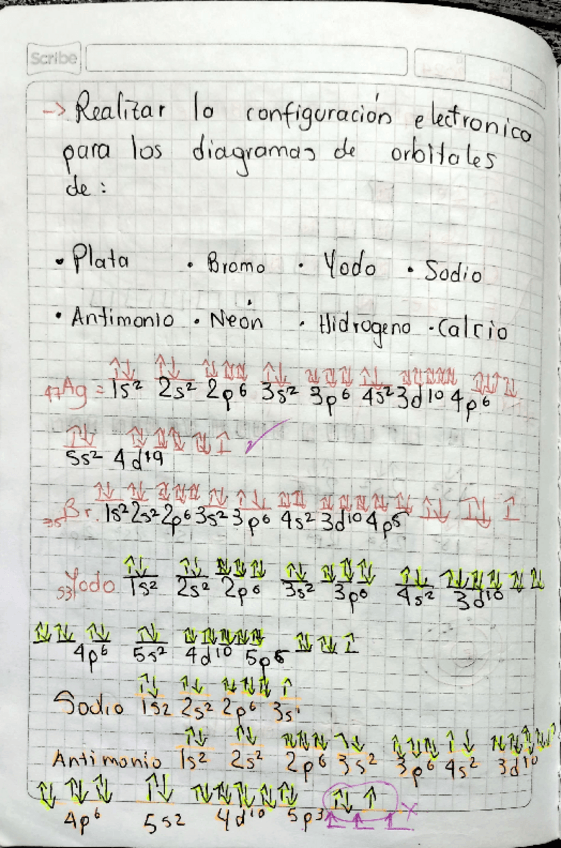 Scribe
→ Realizar la configuración electronica
para los diagramas de orbitales
de:
• Plata • Bromo • Yodo • Sodio
• Antimonio • Neón • Hidrogeno • Calcio
47Ag = 1s² 2s² 2p⁶ 3s² 3p⁶ 4s² 3d¹⁰ 4p⁶
5s² 4d⁹
35Br. 1s² 2s² 2p⁶ 3s² 3p⁶ 4s² 3d¹⁰ 4p⁵
53Yodo 1s² 2s² 2p⁶ 3s² 3p⁶ 4s² 3d¹⁰
4p⁶ 5s² 4d¹⁰ 5p⁵
Sodio 1s2 2s² 2p⁶ 3s¹
Antimonio 1s² 2s² 2p⁶ 3s² 3p⁶ 4s² 3d¹⁰
4p⁶ 5s² 4d¹⁰ 5p³